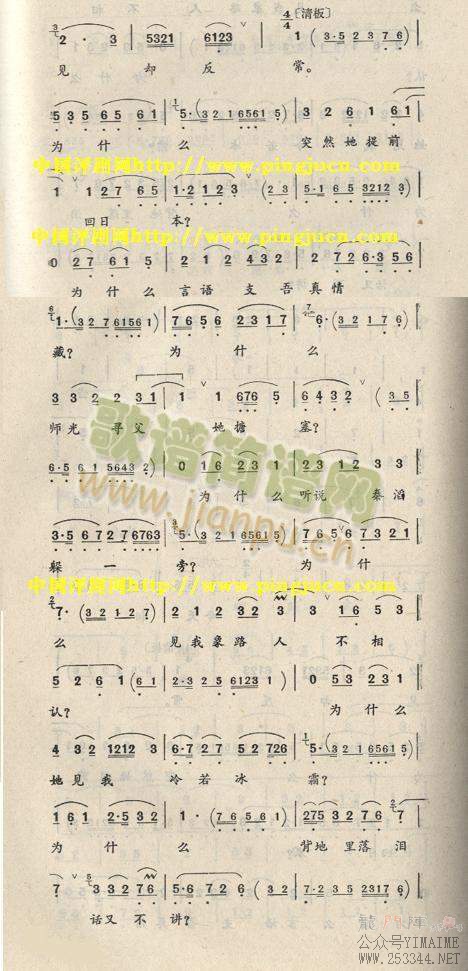 2 · 3 | 5321 6123 | 4/4 〔清板〕 1 (3·5 2376 |
见 却 反 常。
535 65 65 | 5·(3 2 1 6561 5) | 3 2 6 1 61
为 什 么 突然她提前
中国评剧网http://www.pingjucn.com
1 127 65 | 1·2 123 (23 | 5·1 65 3212 3)
回日 本?
中国评剧网http://www.pingjucn.com
0 27 61 5 | 2 12 4 32 | 2 726·356
为什么 言语 支吾真情
1·(3 2 7 6156 1) | 7656 2317 | 6·(3 2 1 2 6)
藏? 为 什 么
3 3 2 2 31 | 1 1 676 5 | 6 5 6 2 (35
师光 寻父 她搪 塞?
6·5 61 5643 2) | 0 16 231 | 2312 3 3
为什么听说 秦滔
3·5 67 27 6763 | 5·(321 6561 5) | 765 6 7321
躲 一 旁? 为 什
中国评剧网http://www.pingjucn.com
7·(32127) | 2 12 32 3 | 3 16 5 3
么 见我象路人 不相
5 26 1 (61 | 2·3 25 6123 1) | 0 53 231
认? 为什么
4 32 1212 3 | 6·7 27 52 726 | 5·(321 6561 5)
她见我 冷若冰 霜?
1 61 2 5 32 | 1·(76561) | 275 32 72 7
为 什 么 背地里落泪
7 3 32 76 | 5·6 726 (32 | 7·2 35 2317 6)
话又 不 讲?
歌谱简谱网
www.jianpu.cn
公众号YIMAIME
www.253344.NET